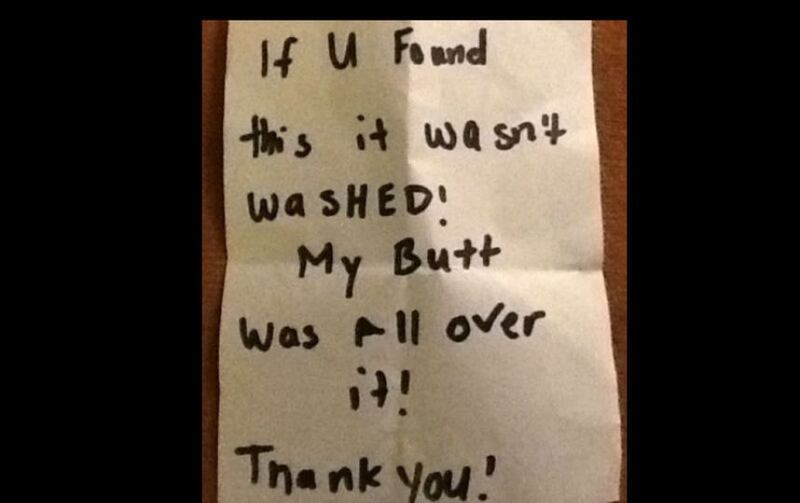 If U Found
this it wasn't
WaSHED!
My Butt
Was All over
it!
Thank you!